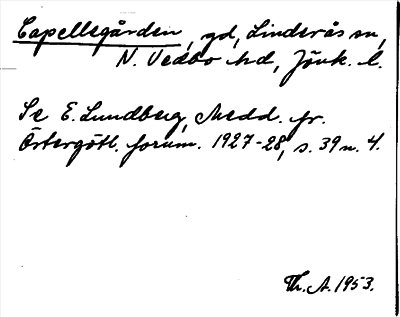 Capellsgården, gd, Linderås sn,
N. Vedbo hd, Jönk. l.
Se E. Lundberg, Medd. fr.
Östergötl. fornm. 1927-28, s. 39 n. 4.
Th. A. 1953.